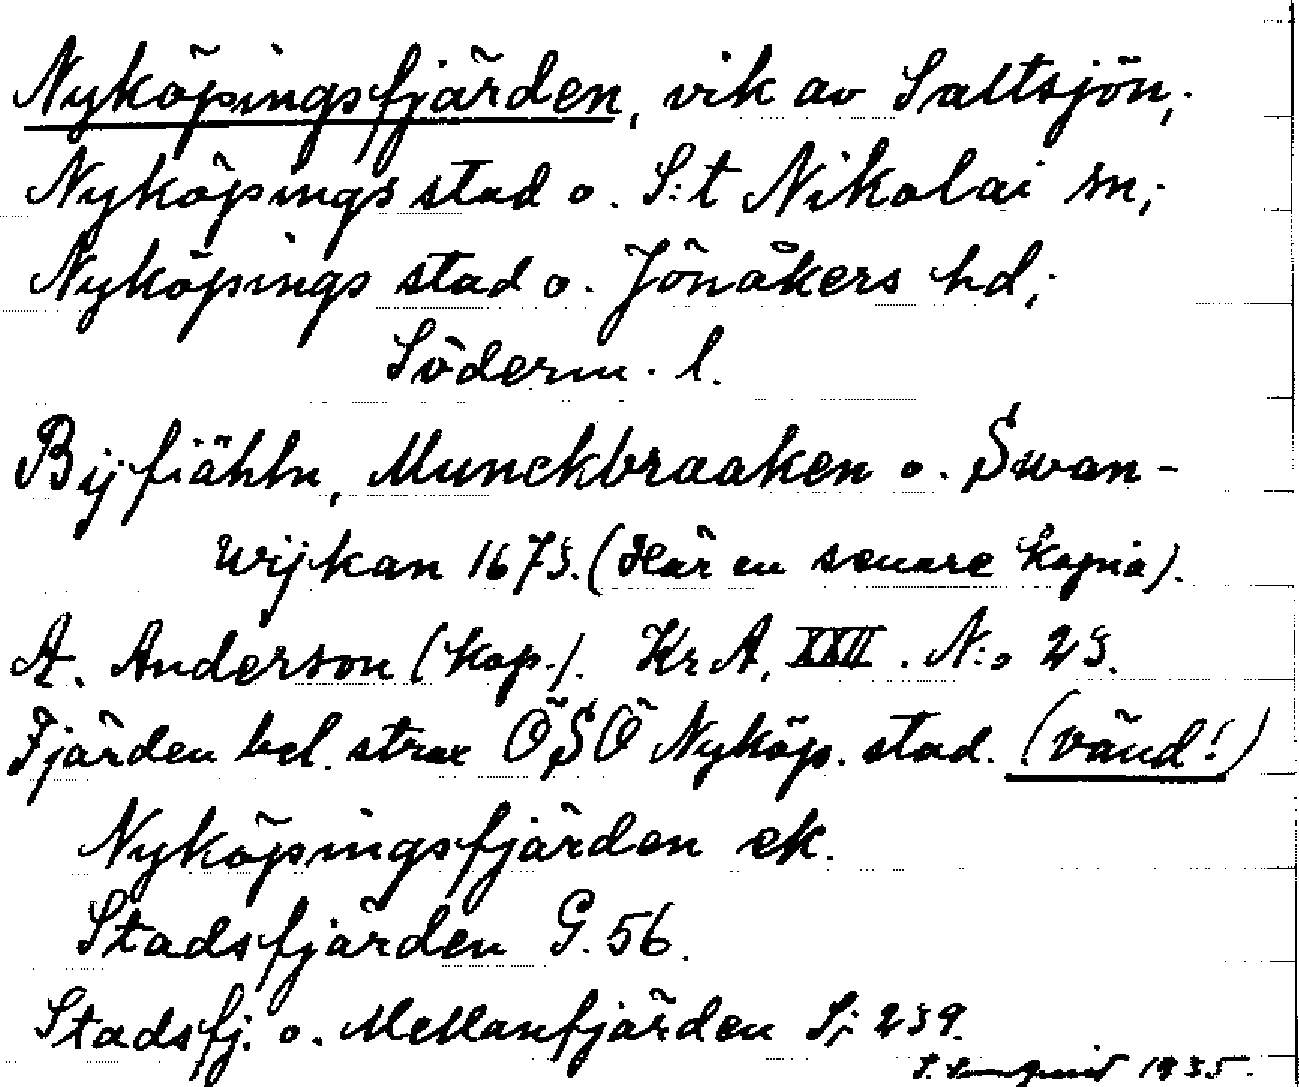 Nyköpingsfjärden, vik av Saltsjön,
Nyköpings stad o. S:t Nikolai sn;
Nyköpings stad o. Jönåkers hd;
Söderm. l.
Bijfiähln, Munckbraaken o. Swan-
wijkan 1673. (Här en senare kopia).
A. Anderson (kop.). Kr A. XXII. N:o 23.
Fjärden bel. strax ÖSÖ Nyköp. stad. (vänd!)
Nyköpingsfjärden ek.
Stadsfjärden G. 56.
Stadsfj. o. Mellanfjärden Sj: 239.
1935.